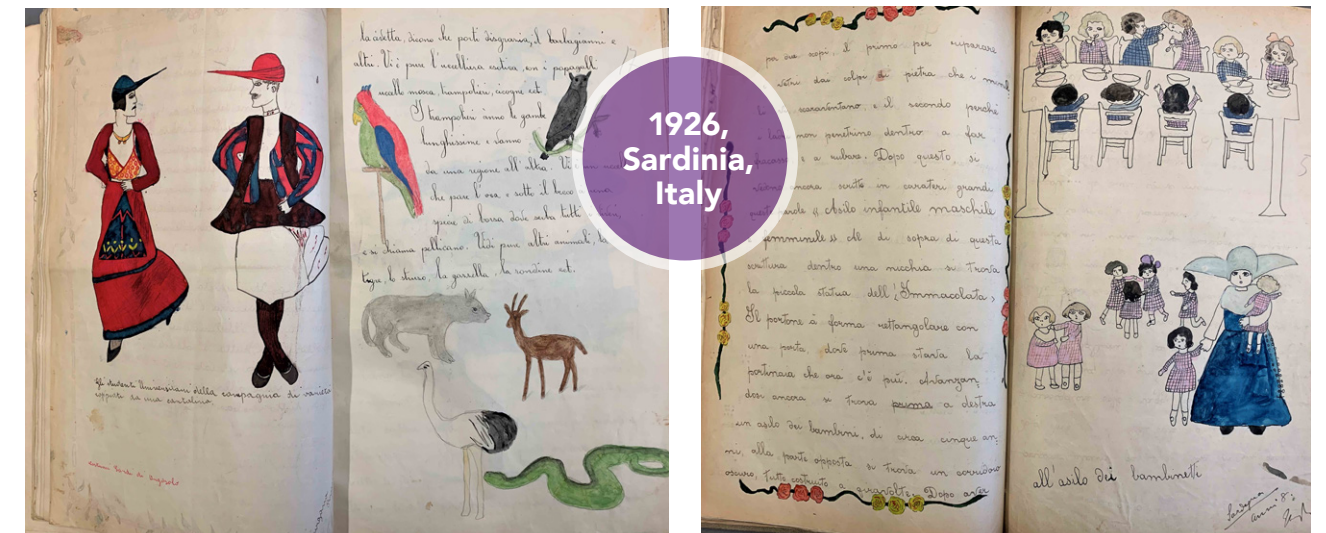 la civetta, dicono che porti disgrazia, il barbagianni e
altri. Vi è pure l'uccelliera esotica, con i papagalli
uccello mosca, trampolieri, cicogne ect.
I trampolieri anno le gambe
lunghissime e vanno
da una regione all'altra. Vi è un
che pare l'oca e sotto il becco
specie di borsa dove serba tutti i
e si chiama pellicano. Vidi pure altri animali, la
tigre, lo struzo, la gazzella, la rondine ect.
Gli studenti Universitari della compagnia di varietà
copiati da una cartolina.
1926,
Sardinia,
Italy
per due scopi, il primo per riparare
vetri dai colpi di pietra che i
scaraventano, e il secondo perché
i ladri non penetrino dentro a far
e a rubare. Dopo questo, si
ancora scritto in carateri grandi
parole « Asilo infantile maschile
e femminile » Al di sopra di questa
scrittura dentro una nicchia si trova
la piccola statua dell'Immacolata,
Il portone à forma rettangolare con
una porta dove prima stava la
portinaia che ora c'è più. Avanzan
dosi ancora si trova prima a destra
un asilo dei bambini, di circa cinque an-
ni, alla parte opposta si trova un corridoio
oscuro, tutto costruito a giravolte. Dopo aver
all'asilo dei bambinetti
Sardegna
anni 8